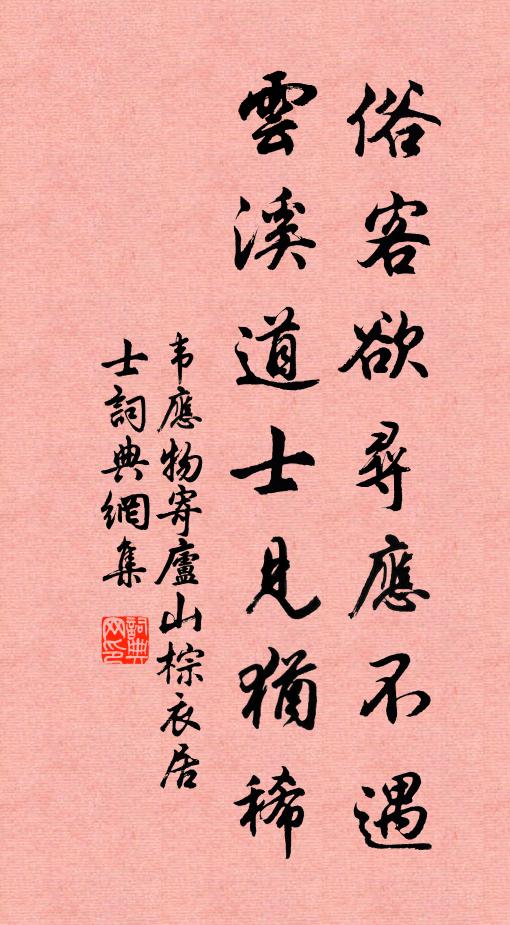 俗客欲尋應不遇
雲溪道士見猶稀
韦應物寄廬山棕衣居
士詞典網集
詞典
网印